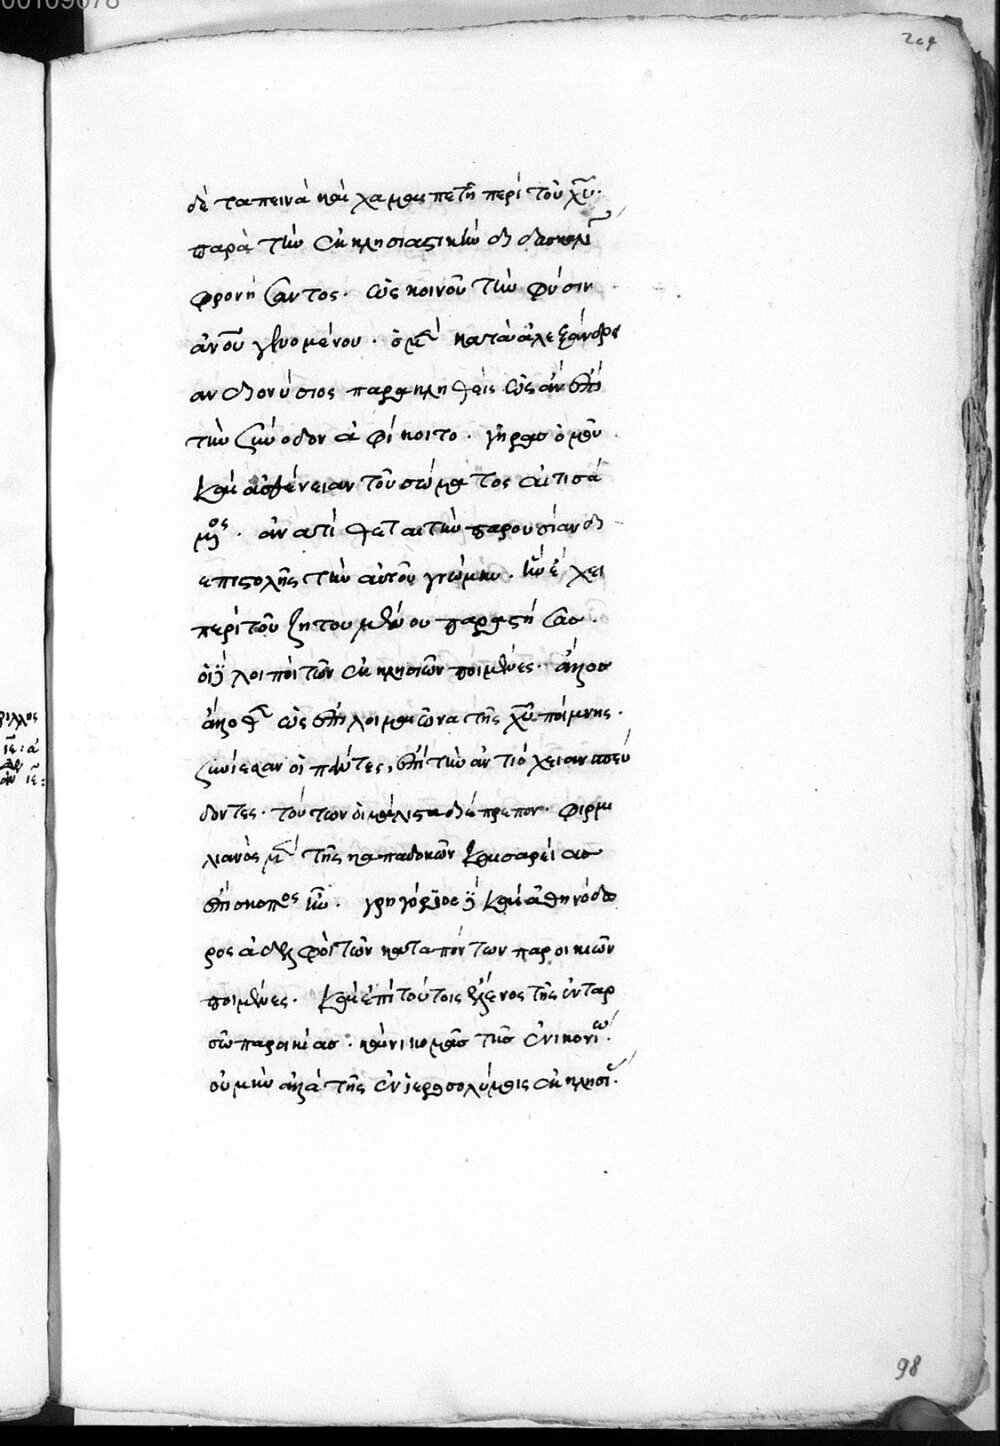 00109078
204
δὲ ταπεινὰ καὶ χαμαιπετῆ περὶ τοῦ χυ̅.
παρὰ τὴν ἐκκλησιαστικὴν διδασκαλί
φρονήσαντος. ὡς κοινοῦ τὴν φύσιν
ἀνου̅ γενομένου. ὁ μὲν κατὰ ἀλεξάνδρει
αν διονύσιος παρακληθεὶς ὡς ἂν ἐπὶ
τὴν σύνοδον ἀφίκοιτο. γῆρας ὁμοῦ
καὶ ἀσθένειαν τοῦ σώματος αἰτιασά
μενος. ἀνατίθεται τὴν παρουσίαν δι
επιστολῆς τὴν αὐτοῦ γνώμην. ἣν ἔχει
περὶ τοῦ ζητουμένου παραστήσας.
οἱ δὲ λοιποὶ τῶν ἐκκλησιῶν ποιμένες. ἄλλος
ἄλλοθεν ὡς ἐπὶ λοιμαιῶνα τῆς χυ̅ ποίμνης.
συνίεσαν οἱ πάντες, ἐπὶ τὴν ἀντιόχειαν σπεύ
δοντες. τούτων οἱ μάλιστα διέπρεπον. φιρμι
λιανὸς μὲν τῆς καππαδοκῶν καισαρείας
ἐπίσκοπος ἦν. γρηγόριος δὲ καὶ ἀθηνόδω
ρος ἀδελφοὶ τῶν κατα πόντων παροικιῶν
ποιμένες. καὶ ἐπὶ τούτοις ἕλενος τῆς ἐν ταρ
σῶ παροικίας. καὶ νικομᾶς τῆς ἐν ικονίω.
οὐ μὴν ἀλλὰ τῆς ἐν ἱεροσολύμοις ἐκκλησί.
98